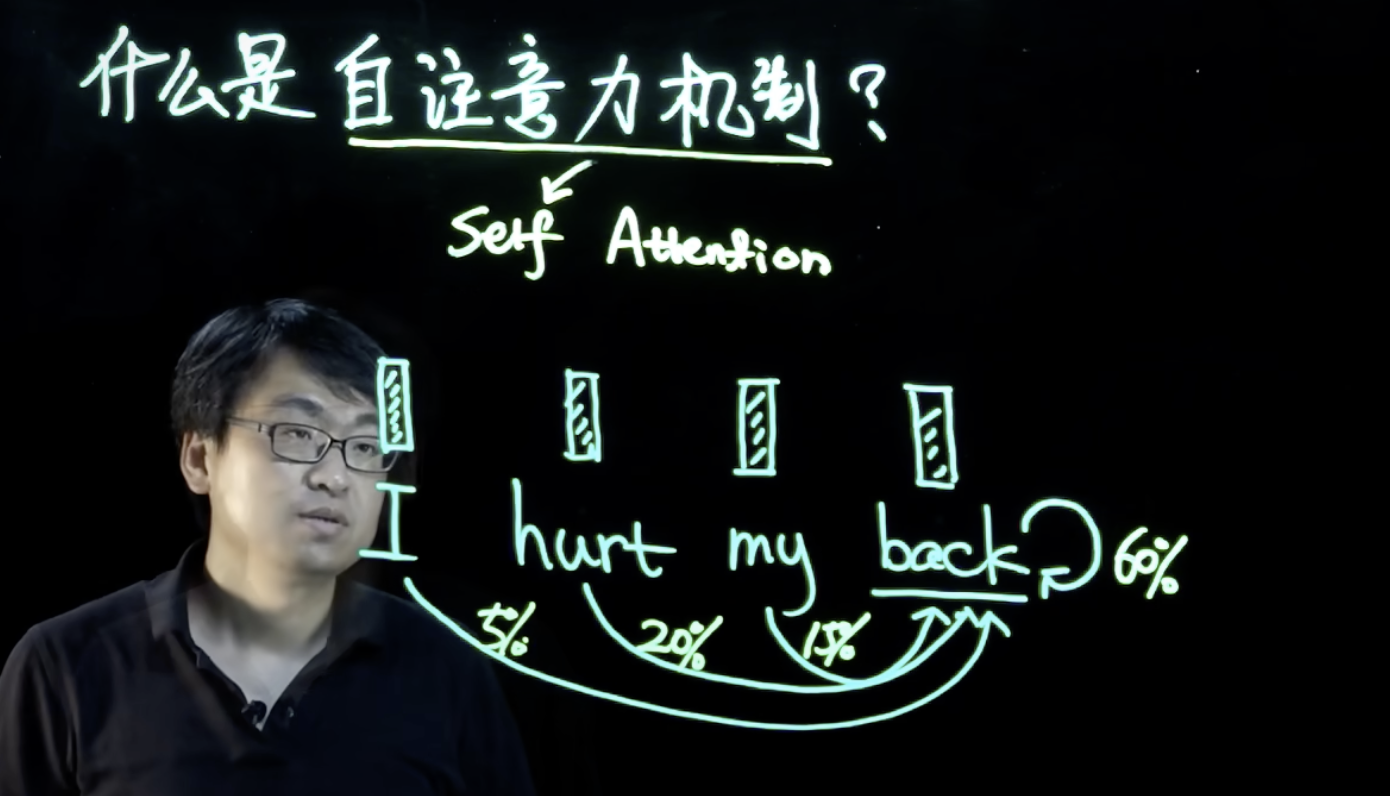 什么是自注意力机制?
Self Attention
I hurt my back 60%
5% 20% 15%